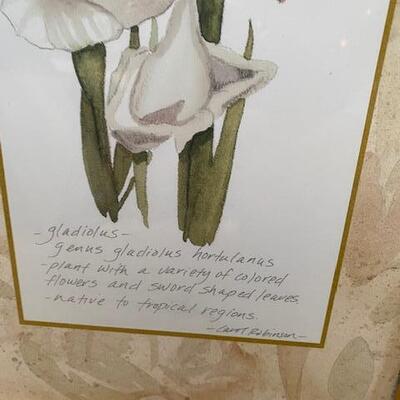 -gladiolus-
genus gladiolus hortulanus
-plant with a variety of colored
flowers and sword shaped leaves.
-native to tropical regions.
-Carol Robinson-